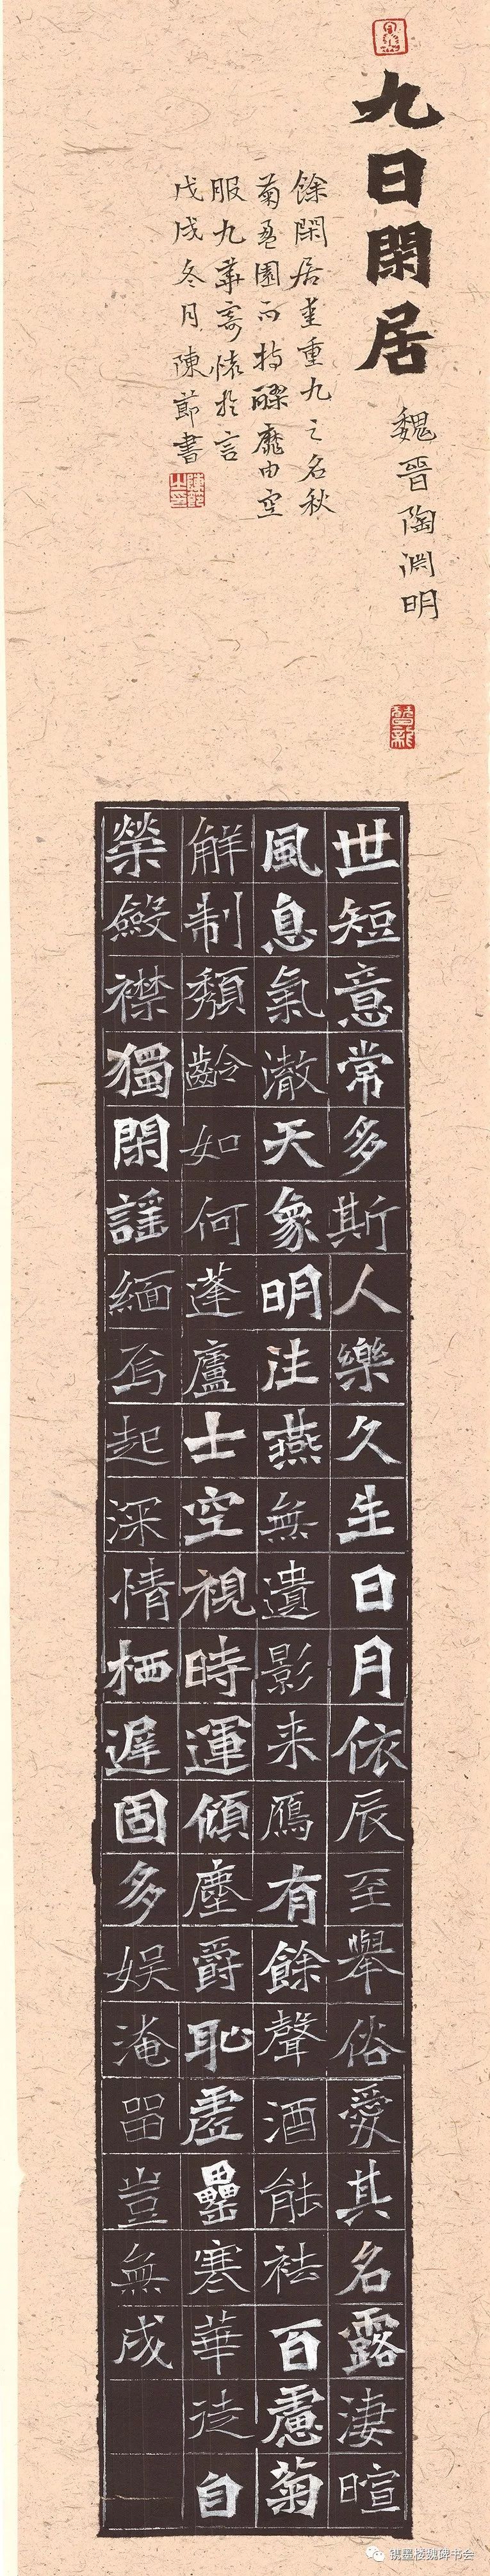 九日閑居
魏晉陶渊明
餘閑居愛重九之名秋
菊盈園而持醪靡由空
服九華寄懷於言
戊戌冬月陳節書
世短意常多斯人樂久生日月依辰至舉俗愛其名露淒暄
風息氣澈天象明往燕無遺影来鴈有餘聲酒能祛百慮菊
解制頹齡如何蓬廬士空視時運傾塵爵恥虛罍寒華徒自
榮斂襟獨閑謠緬焉起深情栖遲固多娛淹留豈無成
魏碑书会